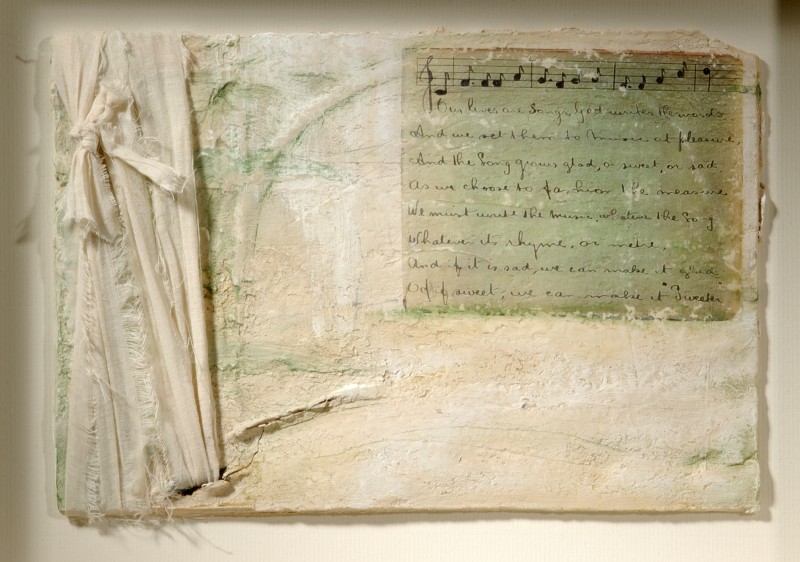 Our lives are Songs, God writes the words
And we set them to music at pleasure,
And the Song grows glad, or sweet, or sad
As we choose to fashion the measure
We must write the music, whatever the Song
Whatever its rhyme, or metre,
And if it is sad, we can make it glad
Or if sweet, we can make it "Sweeter"